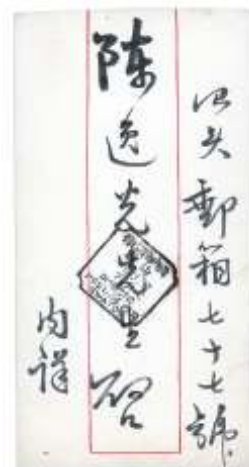 汕头郵箱七十七號
陈逸光先生啓
内祥